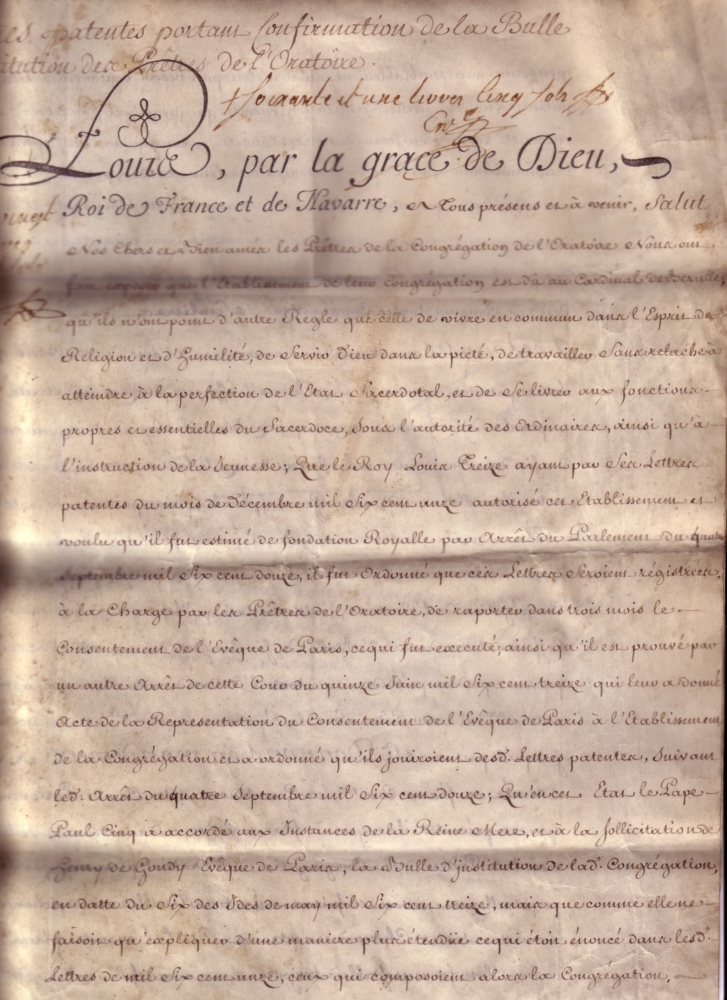 es patentes portant Confirmation de la Bulle
itution des Prêtres de l'Oratoire.
soixante et une livres cinq sols
Louis, par la grace de Dieu,
Roi de France et de Navarre, A Tous présens et à venir, Salut
Nos Chers et Bien amés les Prêtres de la Congrégation de l'Oratoire Nous ont
fait exposer que l'Etablissement de leur Congrégation est dû au Cardinal de Berulle,
qu'ils n'ont point d'autre Regle que celle de vivre en commun dans l'Esprit de
Religion et d'humilité, de Servir Dieu dans la pieté, de travailler Sans relache à
atteindre à la perfection de l'Etat Sacerdotal, et de Se livrer aux fonctions
propres et essentielles du Sacerdoce, Sous l'autorité des Ordinaires, ainsi qu'à
l'instruction de la Jeunesse; Que le Roy Louis Treize ayant par Ses Lettres
patentes du mois de Décembre mil Six cent unze autorisé cet Etablissement et
voulu qu'il fut estimé de fondation Royalle par Arrêt du Parlement du quatre
Septembre mil Six cent douze, il fut Ordonné que ces Lettres Seroient régistrées,
à la Charge par les Prêtres de l'Oratoire, de raporter dans trois mois le
Consentement de l'Evêque de Paris, ce qui fut executé, ainsi qu'il est prouvé par
un autre Arrêt de cette Cour du quinze Juin mil Six cent treize qui leur a donné
Acte de la Representation du Consentement de l'Evêque de Paris à l'Etablissement
de la Congrégation et a ordonné qu'ils jouiroient desd. Lettres patentes, Suivant
led. Arrêt du quatre Septembre mil Six cent douze; Qu'en cet Etat le Pape
Paul Cinq a accordé aux Instances de la Reine Mere, et à la Sollicitation de
Henry de Gondy Evêque de Paris, la Bulle d'institution de lad. Congrégation,
en datte du Six des Ides de may mil Six cent treize, mais que comme elle ne
faisoit qu'expliquer d'une manière plus étendüe ce qui étoit énoncé dans lesd.
Lettres de mil Six cent unze, ceux qui composoient alors la Congrégation,